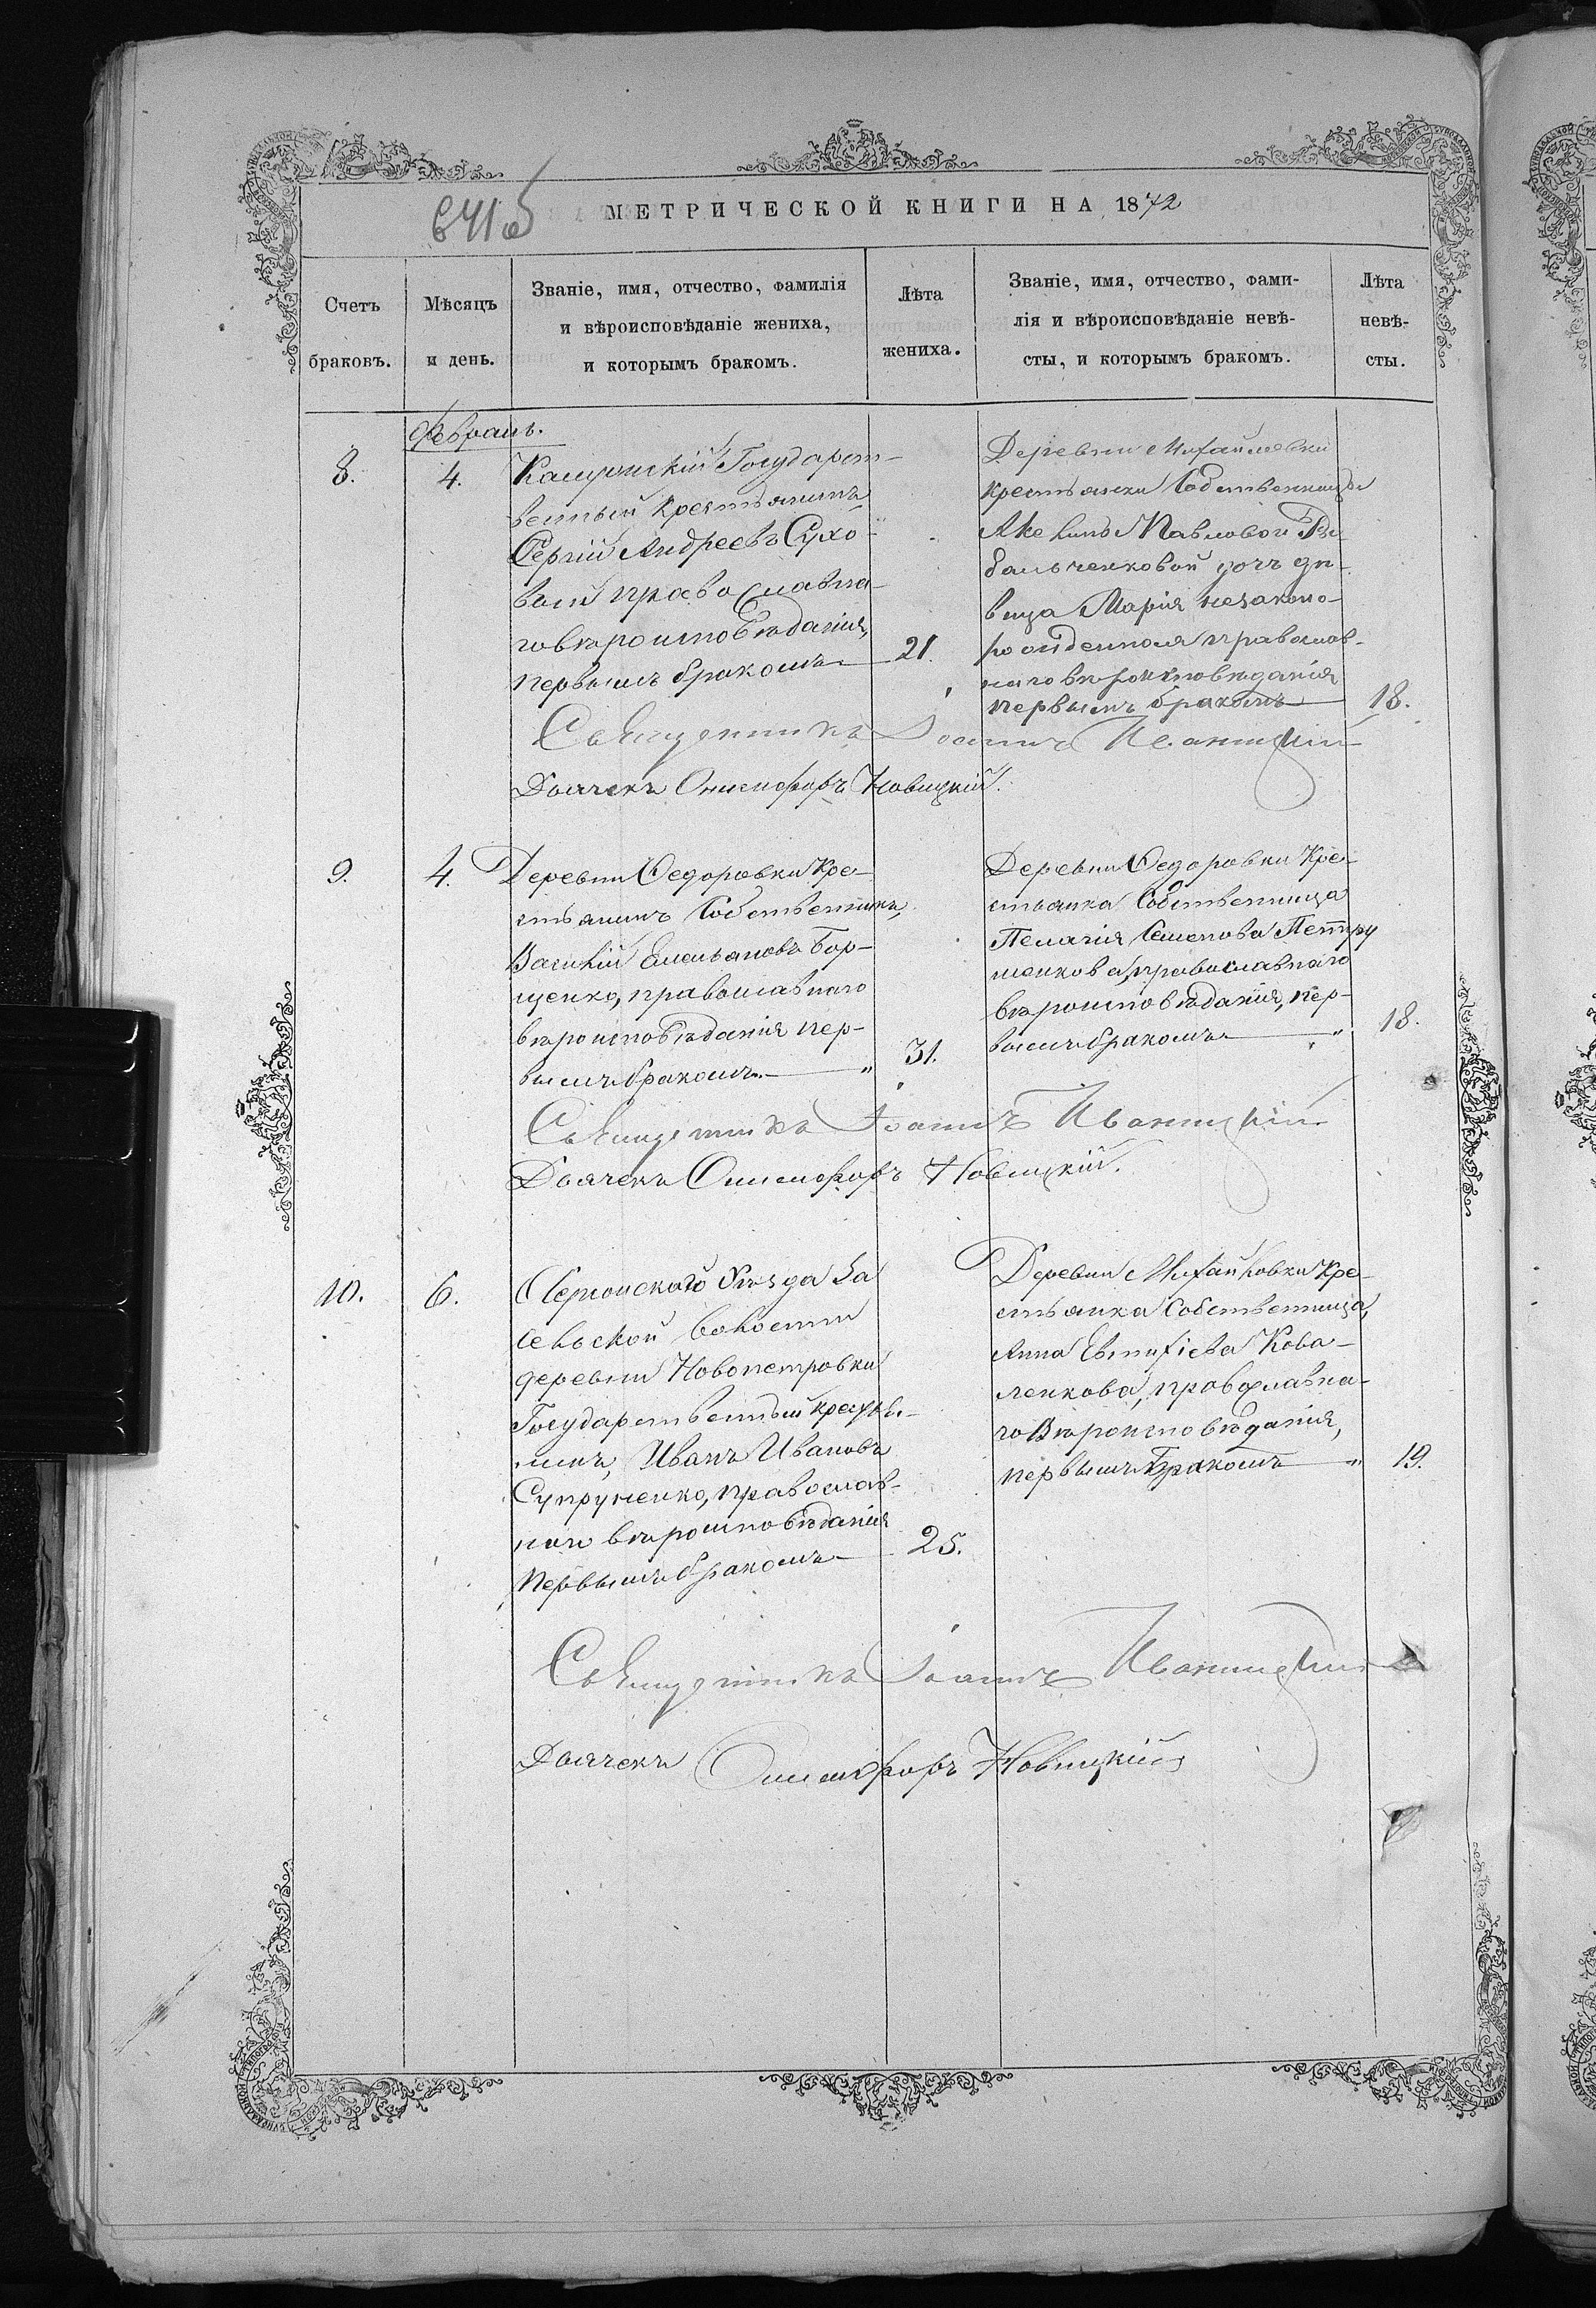 МЕТРИЧЕСКОЙ КНИГИ НА 1872
Счетъ браковъ.
Мѣсяцъ и день.
Званіе, имя, отчество, фамилія
и вѣроисповѣданіе жениха,
и которымъ бракомъ.
Лѣта жениха.
Званіе, имя, отчество, фами-
лія и вѣроисповѣданіе невѣ-
сты, и которымъ бракомъ.
Лѣта невѣ-
сты.
Февраль.
8.
4.
Государст-
венный крестьянинъ
Сергій Андреевъ Сухо-
вый православна-
го вѣроисповѣданія,
первымъ бракомъ
21.
Деревни Михайловки
крестьянки Собственницы
Акелины Павловой Ры-
бальченковой дочь дѣ-
вица Марія незаконо-
рожденная православ-
наго вѣроисповѣданія
первымъ бракомъ
18.
Священникъ Іоаннъ Иваницкій
Дьячекъ Онисифоръ Новицкій.
9.
4.
Деревни Ѳедоровки Кре-
стьянинъ Собственникъ,
Василій Емельяновъ Бор-
щенко, православнаго
вѣроисповѣданія пер-
вымъ бракомъ
31.
Деревни Ѳедоровки Кре-
стьянка Собственница
Пелагія Семенова Петру
шенкова, православнаго
вѣроисповѣданія, пер-
вымъ бракомъ
18.
Священникъ Іоаннъ Иваницкій
Дьячекъ Онисифоръ Новицкій.
10.
6.
Херсонскаго Уѣзда За
сельской волости
деревни Новопетровки
Государственный крестья-
нинъ, Иванъ Ивановъ
Супруненко, православ-
наго вѣроисповѣданія
первымъ бракомъ
25.
Деревни Михайловки Кре-
стьянка Собственница,
Анна Евтихіева Кова-
ленкова, православна-
го Вѣроисповѣданія,
первымъ Бракомъ
19.
Священникъ Іоаннъ Иваницкій
Дьячекъ Онисифоръ Новицкій